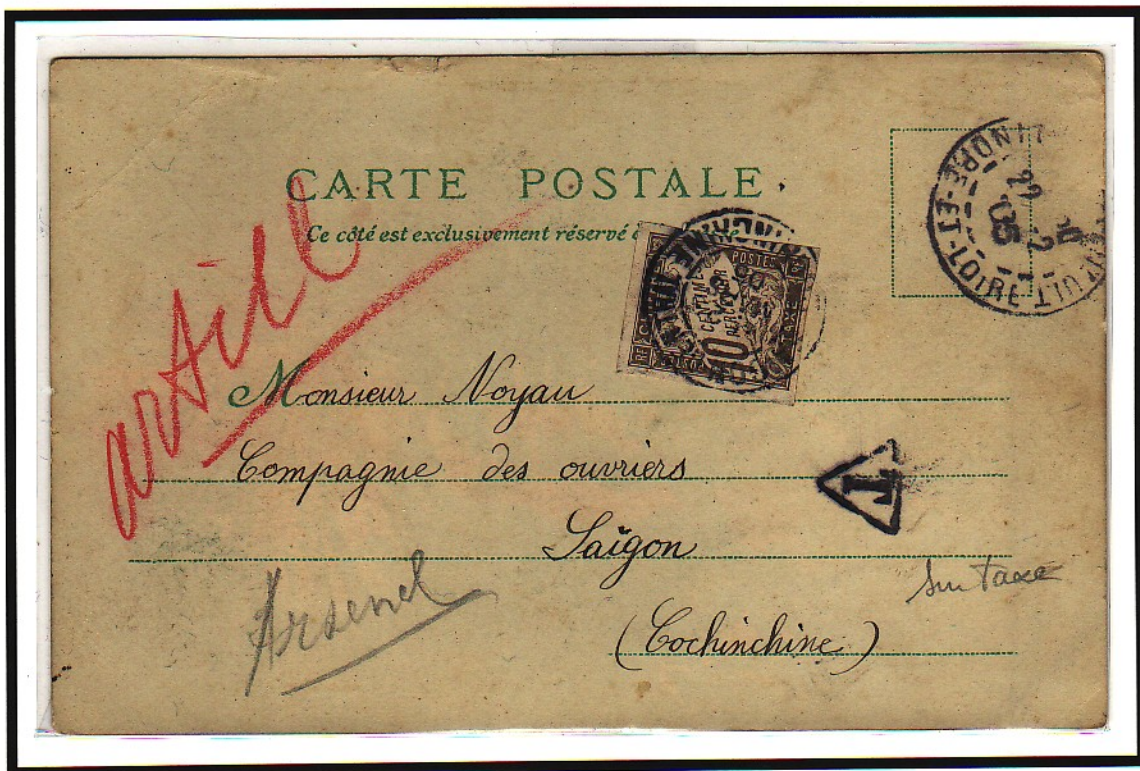 CARTE POSTALE
Ce côté est exclusivement réservé
INDRE-ET-LOIRE
22 -2
05
COCHINCHINE
POSTES
CENTIMES
10
PERCEVOIR
TAXE
artill
Monsieur Noyau
Compagnie des ouvriers
T
Saïgon
sur taxe
Arsenal
(Cochinchine)